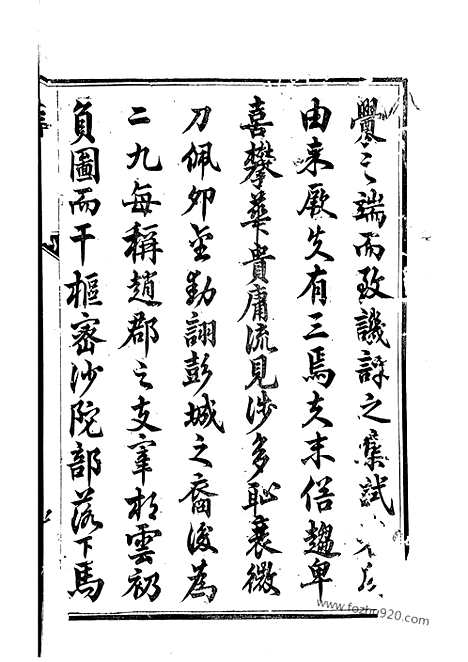 釁之端而致譏評之集試
由来厥失有三焉夫末俗趨卑
喜攀華貴庸流見淺多恥衰微
刀佩卯金動詡彭城之裔後為
二九每稱趙郡之支宰相雲初
負圖而干樞密沙陀部落下馬
www.fozhu920.com